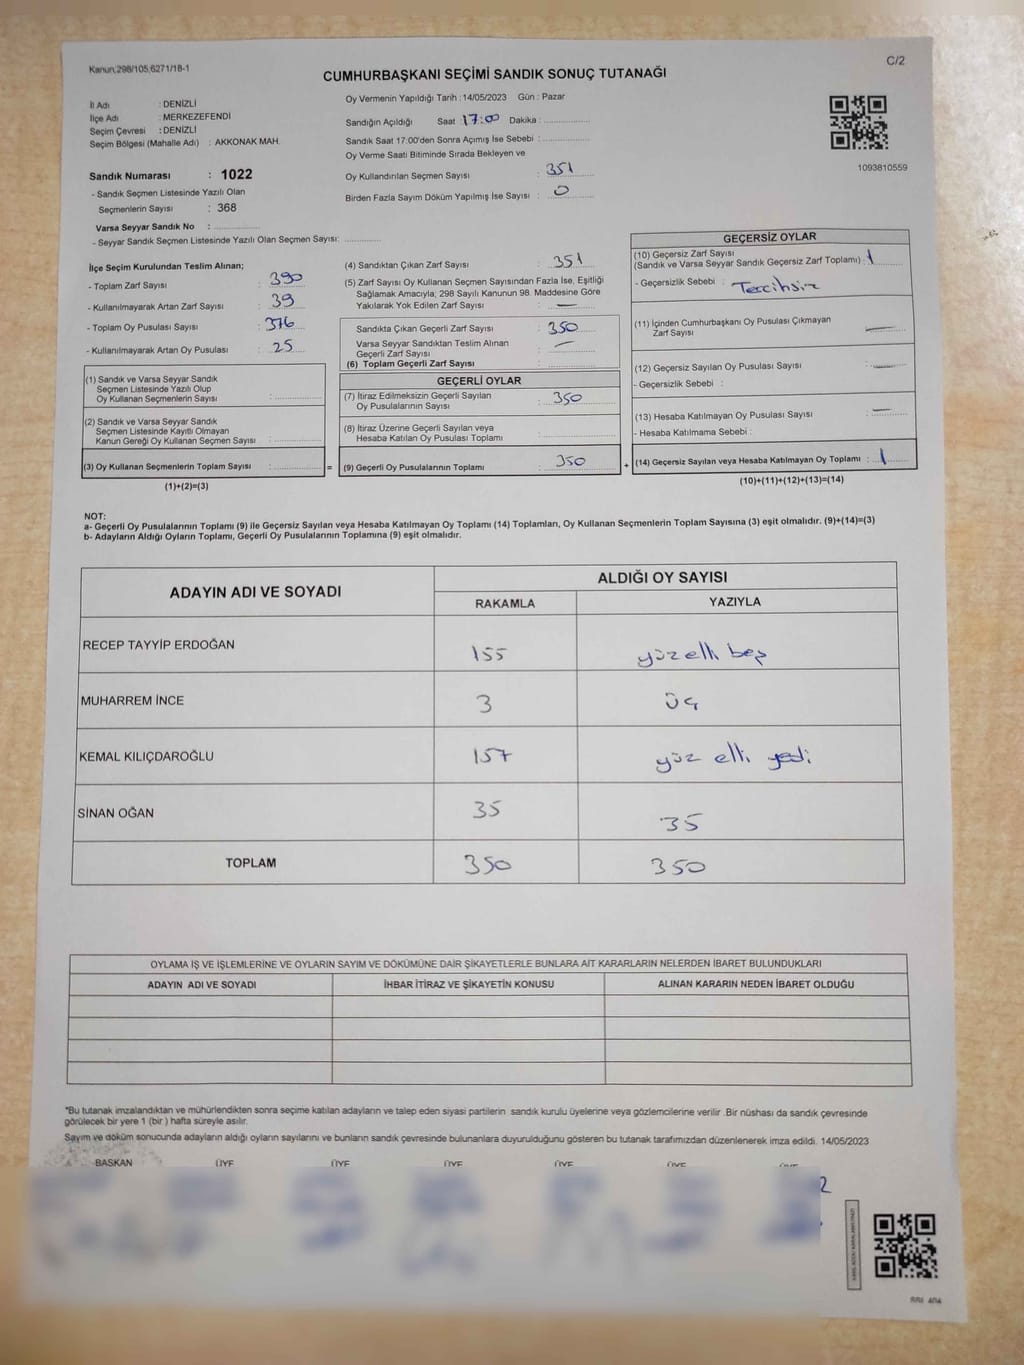 Kanun;298/105;6271/18-1
C/2
CUMHURBAŞKANI SEÇİMİ SANDIK SONUÇ TUTANAĞI
İl Adı : DENİZLİ
İlçe Adı : MERKEZEFENDİ
Seçim Çevresi : DENİZLİ
Seçim Bölgesi (Mahalle Adı) : AKKONAK MAH.
Sandık Numarası : 1022
- Sandık Seçmen Listesinde Yazılı Olan
Seçmenlerin Sayısı : 368
Varsa Seyyar Sandık No :
- Seyyar Sandık Seçmen Listesinde Yazılı Olan Seçmen Sayısı:
Oy Vermenin Yapıldığı Tarih : 14/05/2023 Gün : Pazar
Sandığın Açıldığı Saat : 17:00 Dakika :
Sandık Saat 17:00'den Sonra Açımış İse Sebebi :
Oy Verme Saati Bitiminde Sırada Bekleyen ve
Oy Kullandırılan Seçmen Sayısı : 351
Birden Fazla Sayım Döküm Yapılmış İse Sayısı : 0
1093810559
İlçe Seçim Kurulundan Teslim Alınan;
- Toplam Zarf Sayısı : 390
- Kullanılmayarak Artan Zarf Sayısı : 39
- Toplam Oy Pusulası Sayısı : 376
- Kullanılmayarak Artan Oy Pusulası : 25
(1) Sandık ve Varsa Seyyar Sandık
Seçmen Listesinde Yazılı Olup
Oy Kullanan Seçmenlerin Sayısı :
(2) Sandık ve Varsa Seyyar Sandık
Seçmen Listesinde Kayıtlı Olmayan
Kanun Gereği Oy Kullanan Seçmen Sayısı :
(3) Oy Kullanan Seçmenlerin Toplam Sayısı : =
(1)+(2)=(3)
(4) Sandıktan Çıkan Zarf Sayısı : 351
(5) Zarf Sayısı Oy Kullanan Seçmen Sayısından Fazla İse, Eşitliği
Sağlamak Amacıyla; 298 Sayılı Kanunun 98. Maddesine Göre
Yakılarak Yok Edilen Zarf Sayısı : —
Sandıkta Çıkan Geçerli Zarf Sayısı : 350
Varsa Seyyar Sandıktan Teslim Alınan
Geçerli Zarf Sayısı : —
(6) Toplam Geçerli Zarf Sayısı :
GEÇERLİ OYLAR
(7) İtiraz Edilmeksizin Geçerli Sayılan
Oy Pusulalarının Sayısı : 350
(8) İtiraz Üzerine Geçerli Sayılan veya
Hesaba Katılan Oy Pusulası Toplamı :
(9) Geçerli Oy Pusulalarının Toplamı : 350 +
GEÇERSİZ OYLAR
(10) Geçersiz Zarf Sayısı
(Sandık ve Varsa Seyyar Sandık Geçersiz Zarf Toplamı) : 1
- Geçersizlik Sebebi : Tercihsiz
(11) İçinden Cumhurbaşkanı Oy Pusulası Çıkmayan
Zarf Sayısı : —
(12) Geçersiz Sayılan Oy Pusulası Sayısı : —
- Geçersizlik Sebebi :
(13) Hesaba Katılmayan Oy Pusulası Sayısı : —
- Hesaba Katılmama Sebebi :
(14) Geçersiz Sayılan veya Hesaba Katılmayan Oy Toplamı : 1
(10)+(11)+(12)+(13)=(14)
NOT:
a- Geçerli Oy Pusulalarının Toplamı (9) ile Geçersiz Sayılan veya Hesaba Katılmayan Oy Toplamı (14) Toplamları, Oy Kullanan Seçmenlerin Toplam Sayısına (3) eşit olmalıdır. (9)+(14)=(3)
b- Adayların Aldığı Oyların Toplamı, Geçerli Oy Pusulalarının Toplamına (9) eşit olmalıdır.
ADAYIN ADI VE SOYADI
ALDIĞI OY SAYISI
RAKAMLA YAZIYLA
RECEP TAYYİP ERDOĞAN 155 yüz elli beş
MUHARREM İNCE 3 üç
KEMAL KILIÇDAROĞLU 157 yüz elli yedi
SİNAN OĞAN 35 35
TOPLAM 350 350
OYLAMA İŞ VE İŞLEMLERİNE VE OYLARIN SAYIM VE DÖKÜMÜNE DAİR ŞİKAYETLERLE BUNLARA AİT KARARLARIN NELERDEN İBARET BULUNDUKLARI
ADAYIN ADI VE SOYADI İHBAR İTİRAZ VE ŞİKAYETİN KONUSU ALINAN KARARIN NEDEN İBARET OLDUĞU
*Bu tutanak imzalandıktan ve mühürlendikten sonra seçime katılan adayların ve talep eden siyasi partilerin sandık kurulu üyelerine veya gözlemcilerine verilir .Bir nüshası da sandık çevresinde
görülecek bir yere 1 (bir) hafta süreyle asılır.
Sayım ve döküm sonucunda adayların aldığı oyların sayılarını ve bunların sandık çevresinde bulunanlara duyurulduğunu gösteren bu tutanak tarafımızdan düzenlenerek imza edildi. 14/05/2023
BAŞKAN ÜYE ÜYE ÜYE ÜYE ÜYE ÜYE